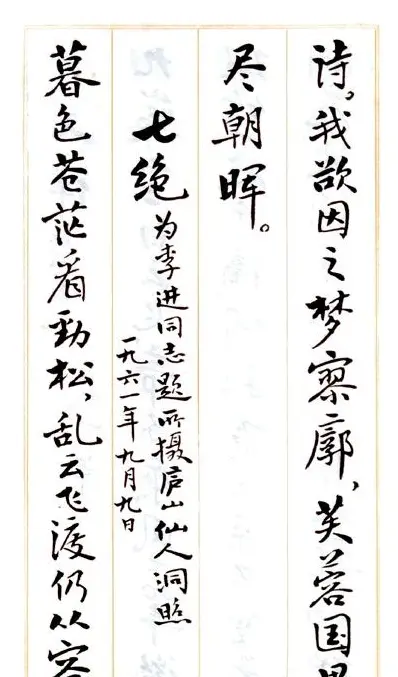 诗,我欲因之梦寥廓,芙蓉国里
尽朝晖。
七绝 为李进同志题所摄庐山仙人洞照
一九六一年九月九日
暮色苍茫看劲松,乱云飞渡仍从容